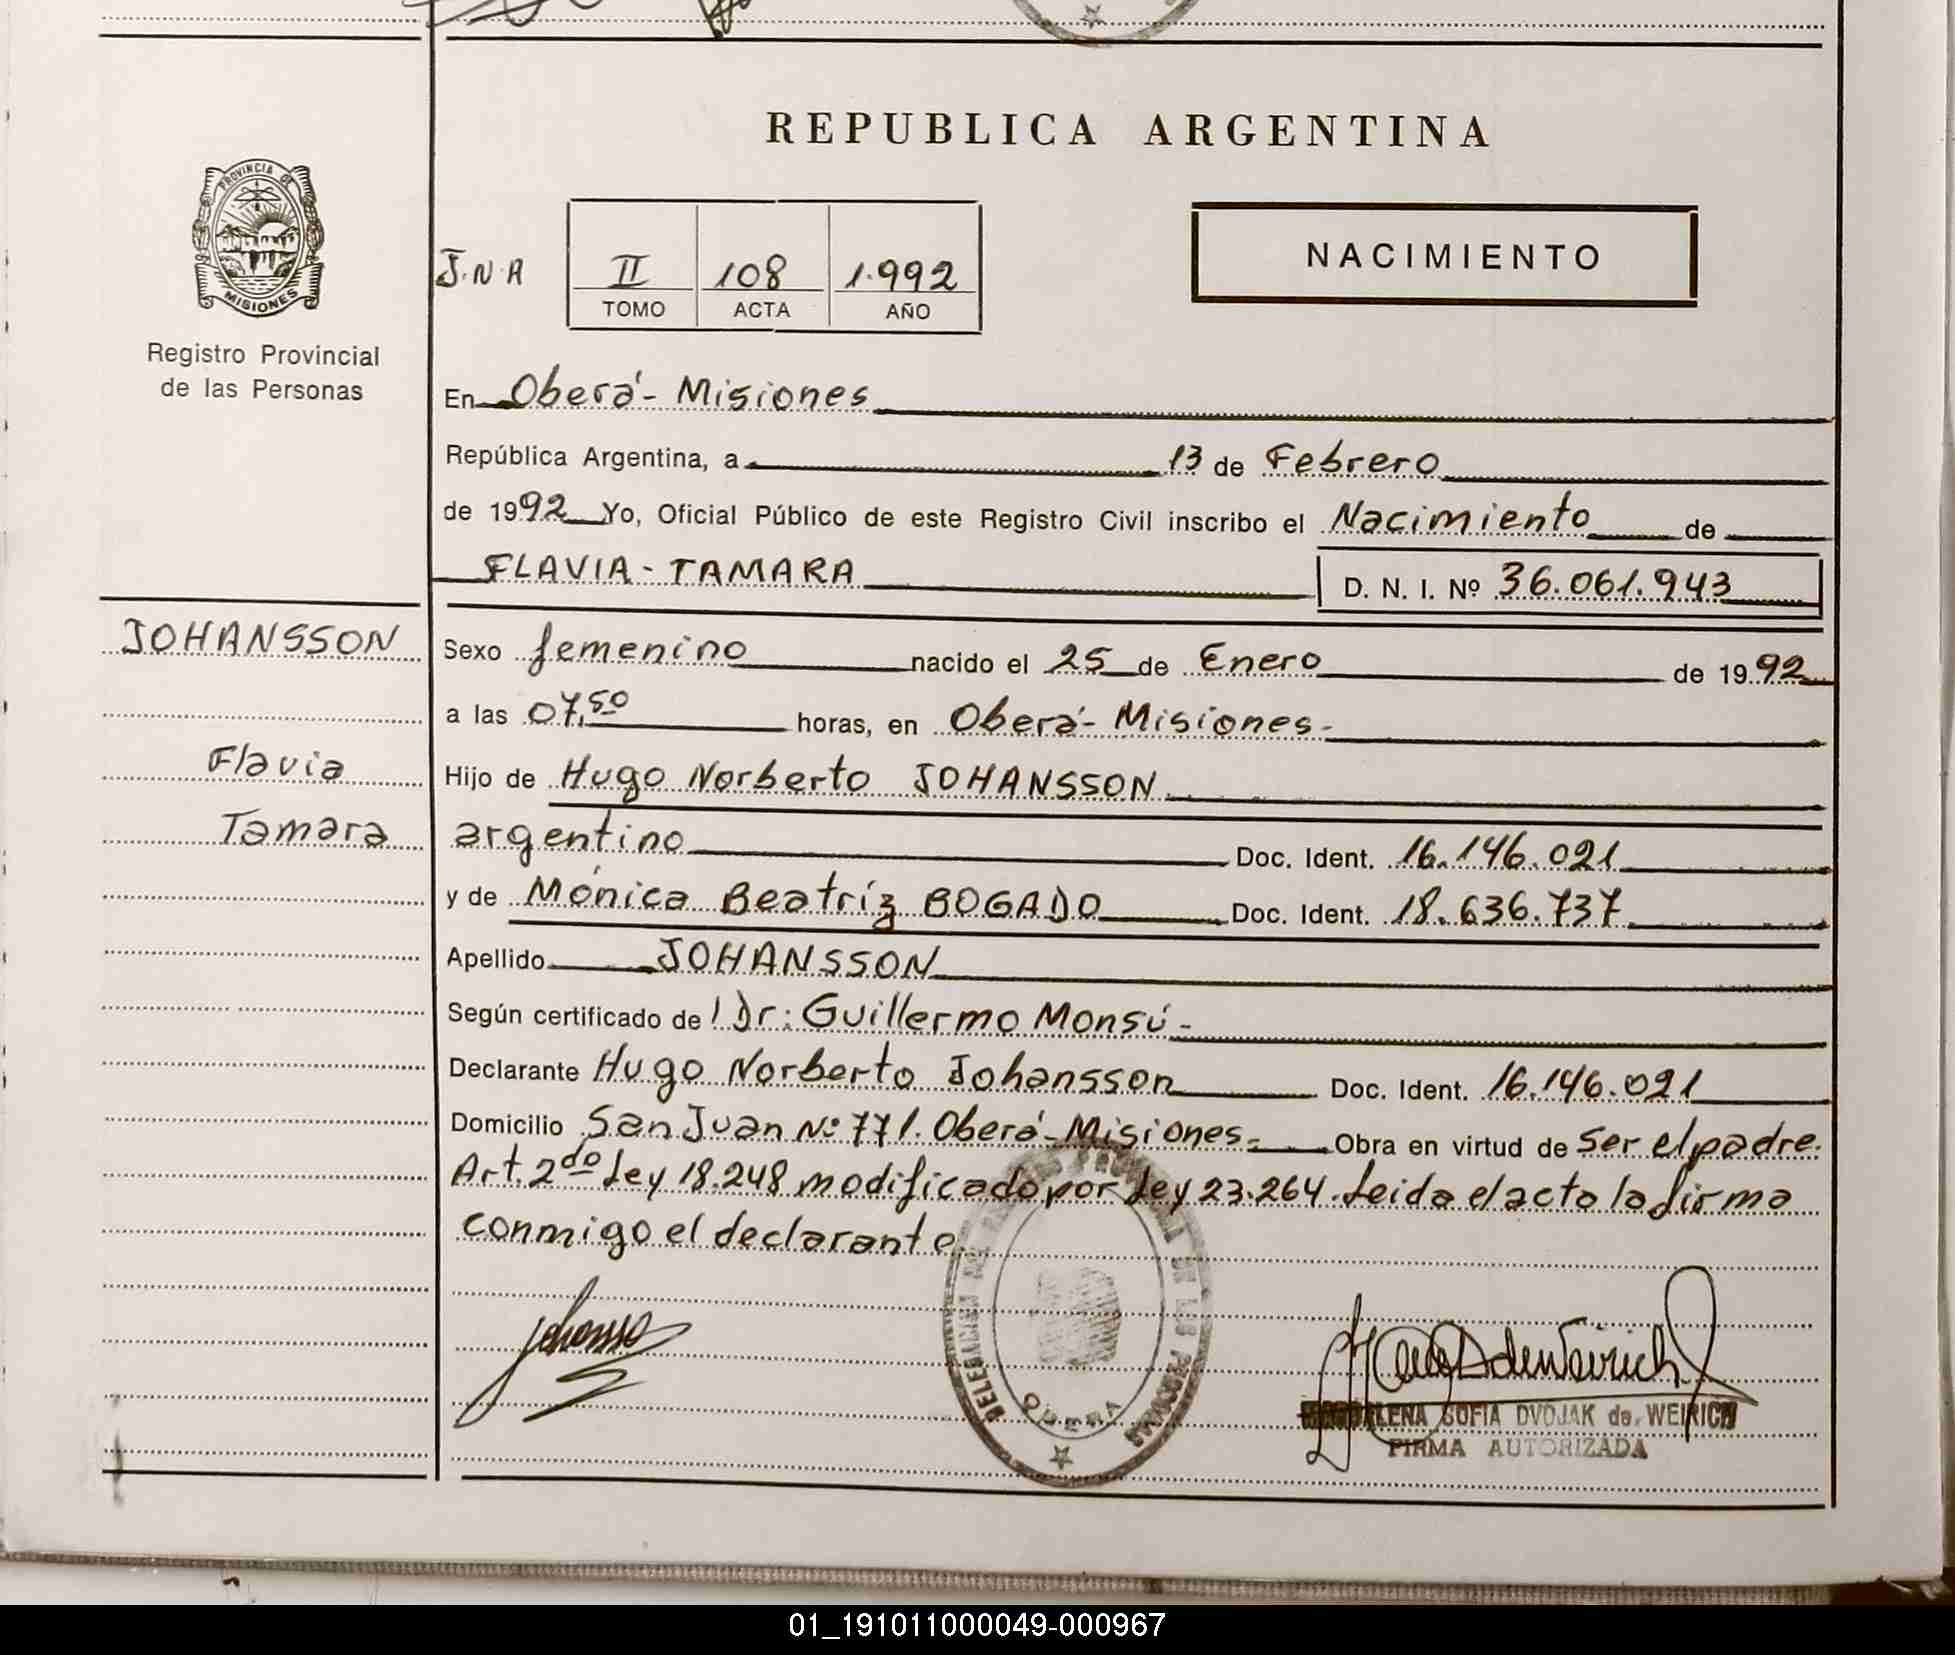 REPUBLICA ARGENTINA
PROVINCIA DE
MISIONES
Registro Provincial
de las Personas
J.N.A
II 108 1.992
TOMO ACTA AÑO
NACIMIENTO
En Oberá - Misiones
República Argentina, a 13 de Febrero
de 1992 Yo, Oficial Público de este Registro Civil inscribo el Nacimiento de
FLAVIA - TAMARA
D. N. I. Nº 36.061.943
JOHANSSON
Flavia
Tamara
Sexo femenino nacido el 25 de Enero de 1992
a las 07,50 horas, en Oberá - Misiones -
Hijo de Hugo Norberto JOHANSSON
argentino Doc. Ident. 16.146.021
y de Mónica Beatríz BOGADO Doc. Ident. 18.636.737
Apellido JOHANSSON
Según certificado de l Dr: Guillermo Monsú -
Declarante Hugo Norberto Johansson Doc. Ident. 16.146.021
Domicilio San Juan Nº 771. Oberá - Misiones - Obra en virtud de ser el padre.
Art. 2do Ley 18.248 modificado por Ley 23.264. Leida el acta la firma
conmigo el declarante.
DELEGACION DEL REGISTRO PROVINCIAL DE LAS PERSONAS
OBERA
MAGDALENA SOFIA DVOJAK de WEIRICH
FIRMA AUTORIZADA
01_191011000049-000967